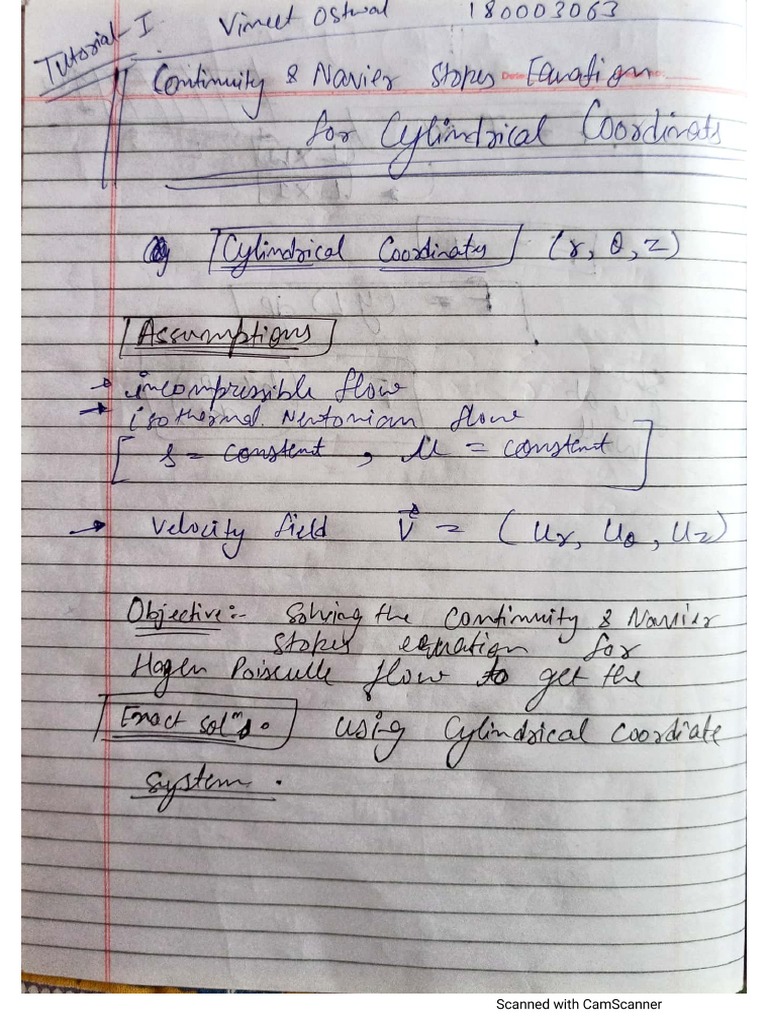 Tutorial-I Vineet Ostwal 180003063
Continuity & Navier Stokes Equation
for Cylindrical Coordinats
Cylindrical Coordinates (r, θ, z)
Assumptions
→ incompressible flow
→ isothermal Newtonian flow
[ ρ = constant , μ = constant ]
→ Velocity field V⃗ = (u_r, u_θ, u_z)
Objective:- Solving the Continuity & Navier
Stokes equation for
Hagen Poiseulle flow to get the
Exact solⁿs. using Cylindrical Coordiate
system.
Scanned with CamScanner